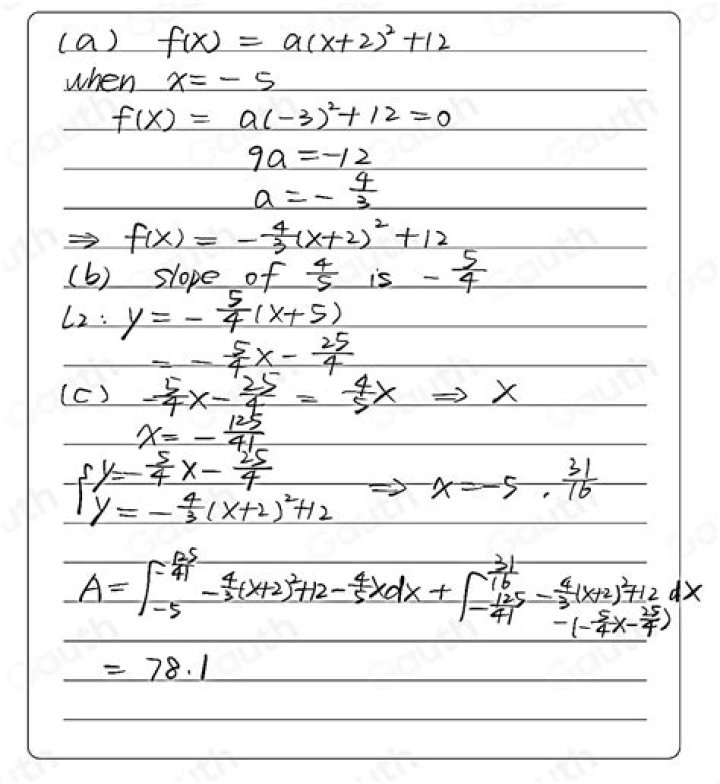 (a) f(x) = a(x+2)² + 12
when x = -5
f(x) = a(-3)² + 12 = 0
9a = -12
a = -4/3
⇒ f(x) = -4/3(x+2)² + 12
(b) slope of 4/5 is -5/4
L2: y = -5/4(x+5)
= -5/4x - 25/4
(c) -5/4x - 25/4 = 4/5x ⇒ x
x = -125/41
{y = -5/4x - 25/4
y = -4/3(x+2)²+12 ⇒ x = -5 . 31/16
A = ∫_{-5}^{-125/41} -4/3(x+2)²+12-4/5xdx + ∫_{-125/41}^{31/16} -4/3(x+2)²+12 dx
-(-5/4x-25/4)
= 78.1
Gauth